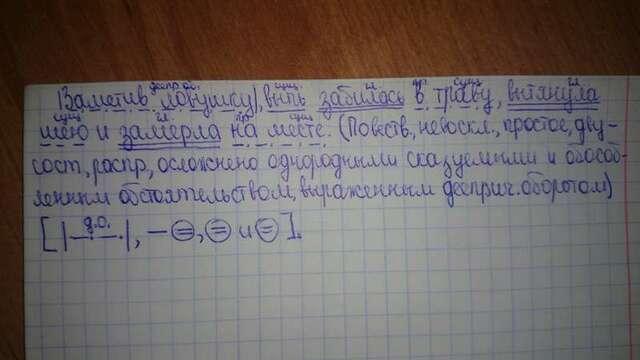 |Заметив ловушку|, выпь забилась в траву, вытянула
шею и замерла на месте. (Повеств., невоскл., простое, дву-
сост., распр., осложнено однородными сказуемыми и обособ-
ленным обстоятельством, выраженным дееприч. оборотом)
[|д.о.|, — =, = и =].